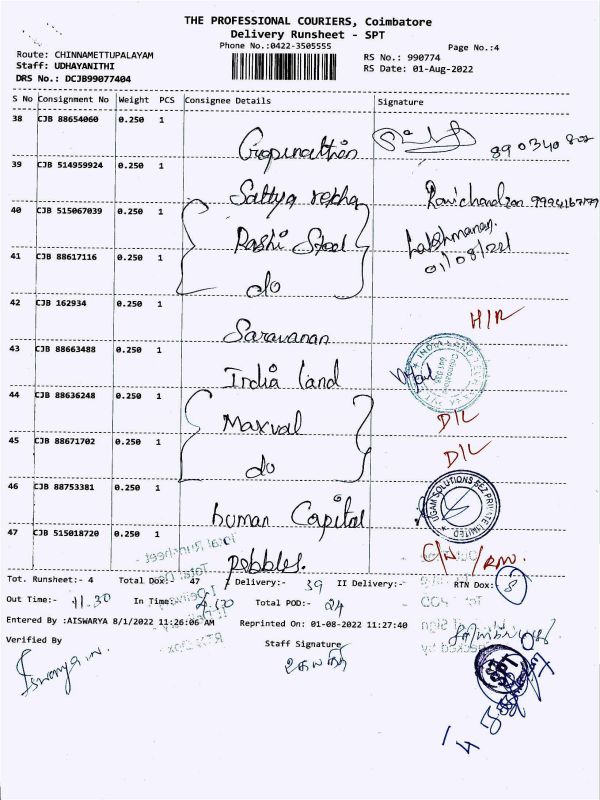 THE PROFESSIONAL COURIERS, Coimbatore
Delivery Runsheet - SPT
Phone No.:0422-3505555
Page No.:4
Route: CHINNAMETTUPALAYAM
RS No.: 990774
Staff: UDHAYANITHI
RS Date: 01-Aug-2022
DRS No.: DCJB99077404
S No Consignment No Weight PCS Consignee Details Signature
38 CJB 88654060 0.250 1
Gopinathan
39 CJB 514959924 0.250 1
Sattya rekha Ravichandran
40 CJB 515067039 0.250 1
Rashi Steel Lakshmanan.
41 CJB 88617116 0.250 1
do
42 CJB 162934 0.250 1
Saravanan H/R
43 CJB 88663488 0.250 1
India land
44 CJB 88636248 0.250 1
Maxval D/L
45 CJB 88671702 0.250 1
do D/L
46 CJB 88753381 0.250 1
human Capital
UGAM SOLUTIONS SEZ PRIVATE LIMITED
47 CJB 515018720 0.250 1
pebbles.
Tot. Runsheet:- 4 Total Dox:- 47 I Delivery:- 39 II Delivery:- RTN Dox:- 8
Out Time:- 11.30 In Time:- Total POD:- 24
Entered By :AISWARYA 8/1/2022 11:26:06 AM Reprinted On: 01-08-2022 11:27:40
Verified By Staff Signature
SPT